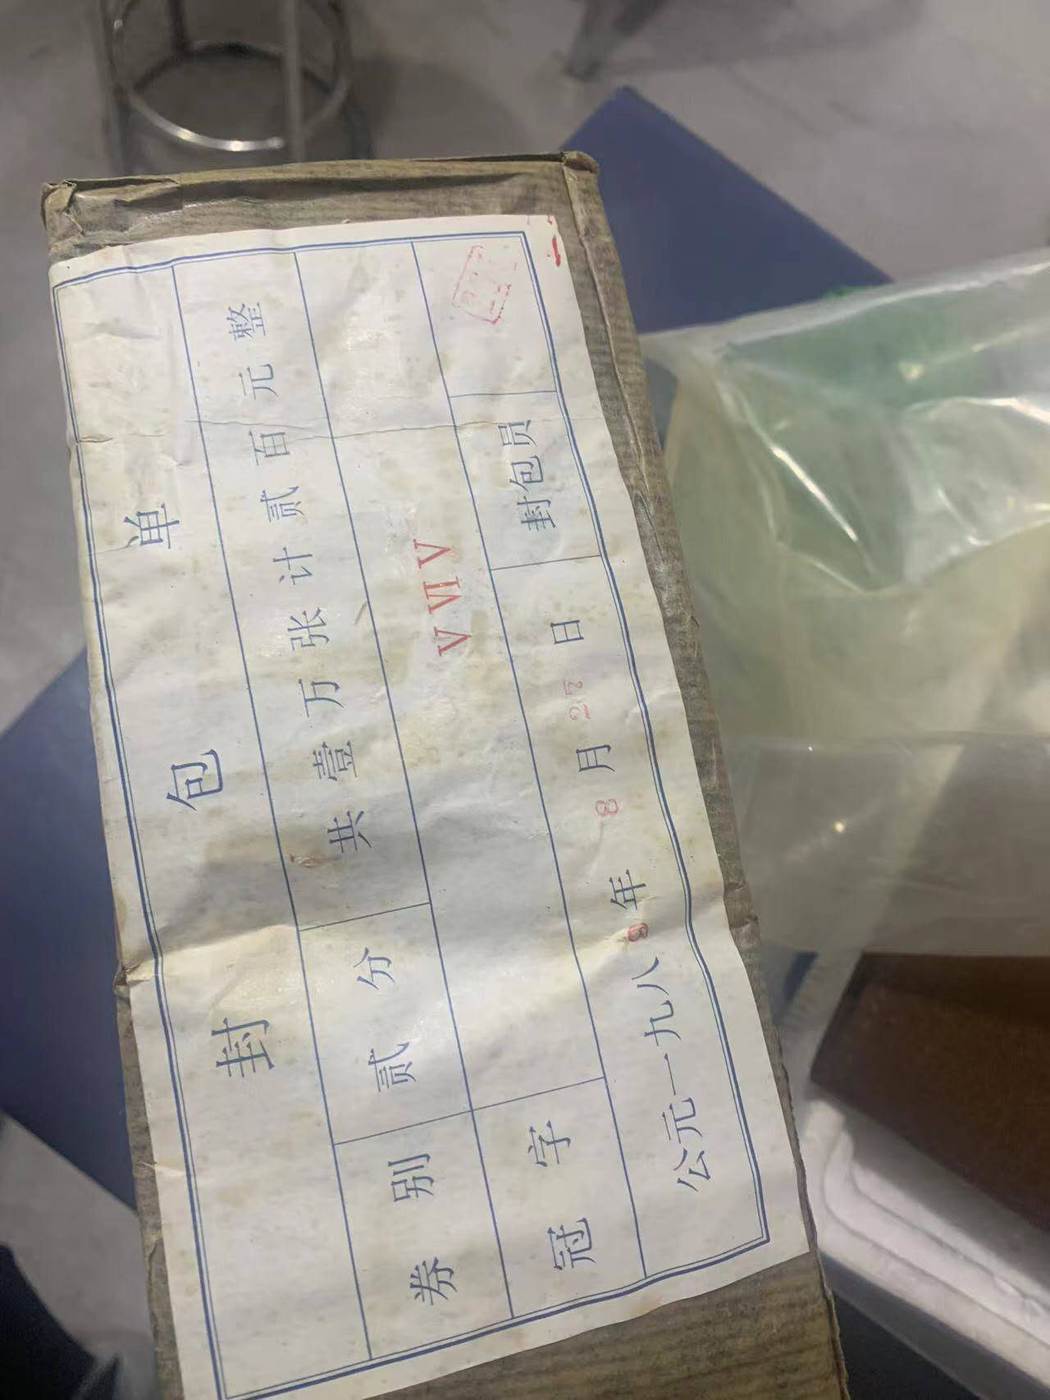 封包单
券别 贰分 共壹万张计贰百元整
冠字 V VII V
公元一九八8年8月27日 封包员